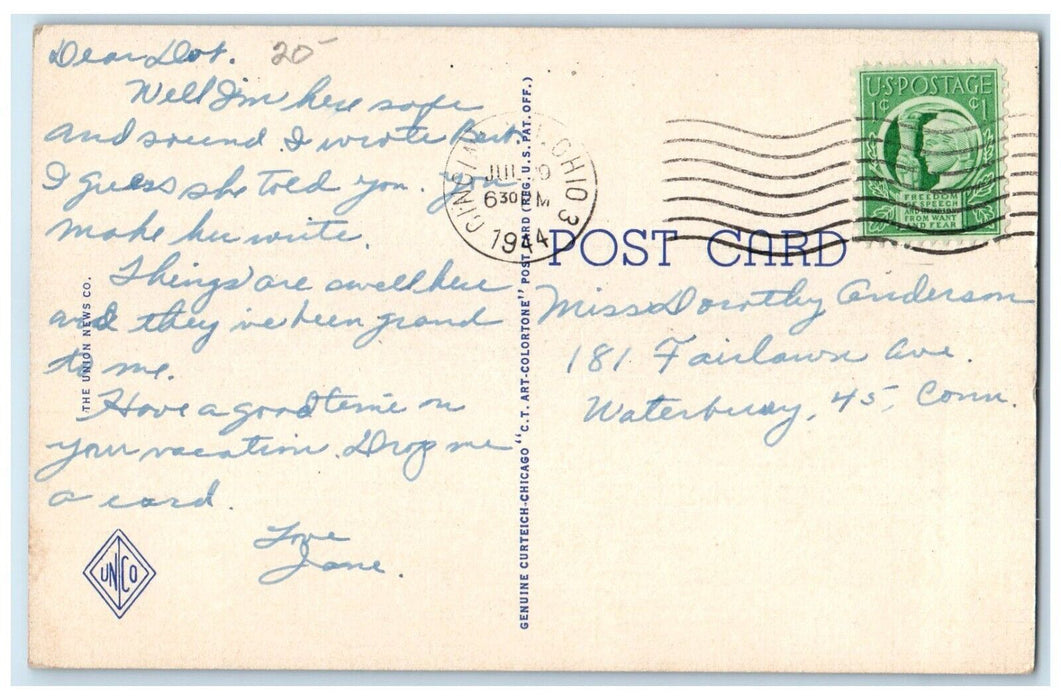 Dear Dot. 20-
Well I'm here safe
and sound. I wrote Barb.
I guess she told you. You
make her write.
Things are swell here
and they've been grand
to me.
Have a good time on
your vacation. Drop me
a card.
Love
Jane.
THE UNION NEWS CO.
UNCO
GENUINE CURTEICH-CHICAGO "C.T. ART-COLORTONE" POST CARD (REG. U.S. PAT. OFF.)
OHIO 3
JUL
6 30 M
1944
U.S. POSTAGE
1¢ ¢1
FREEDOM
OF SPEECH
FROM WANT
AND FEAR
POST CARD
Miss Dorothy Anderson
181 Fairlawn Ave.
Waterbury, 45, Conn.